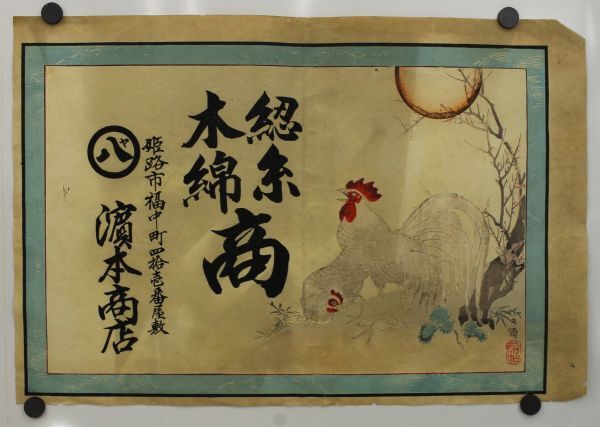 綛糸
木綿
商
姫路市福中町四拾壱番屋敷
ヤ
八
濱本商店